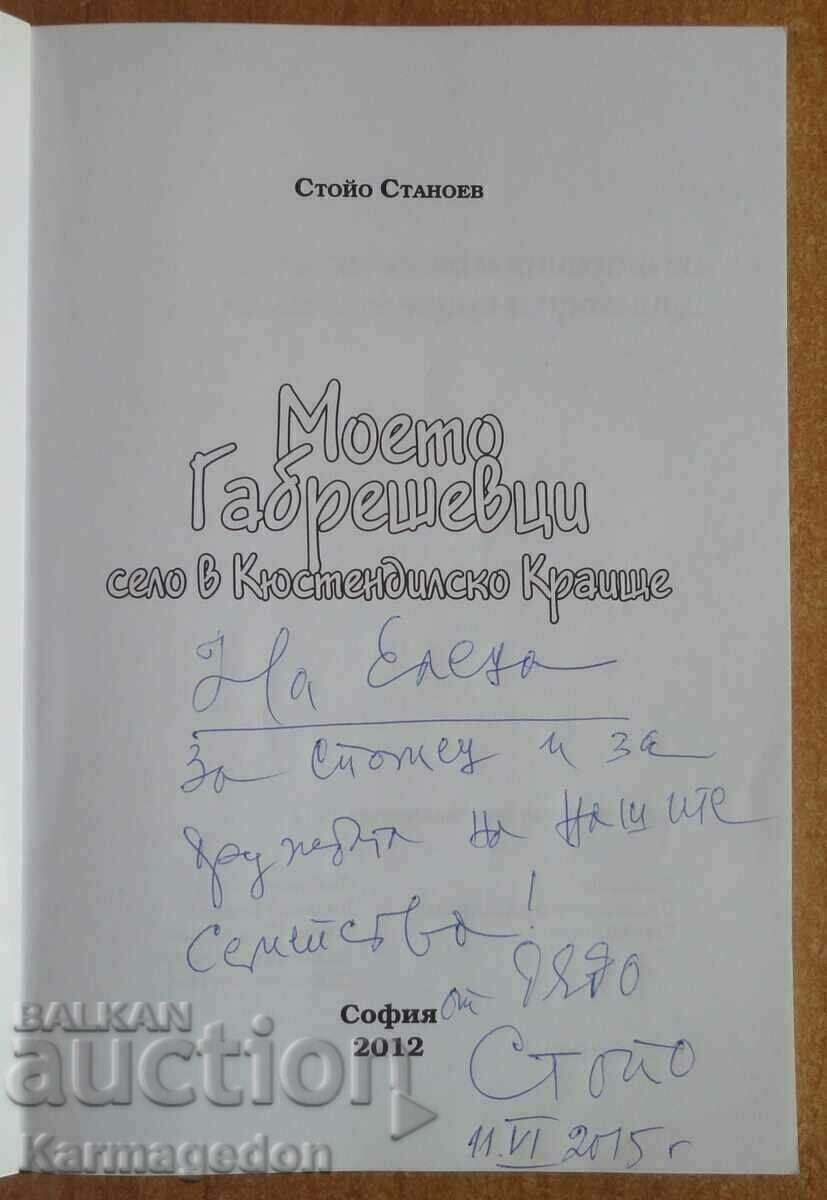 Стойо Станоев
Моето
Габрешевци
село в Кюстендилско Краище
На Елена
За спомен и за
дружбата на нашите
семейства!
от дядо
София
2012
Стойо
11.VI 2015 г
BALKAN
auction
Karmagedon